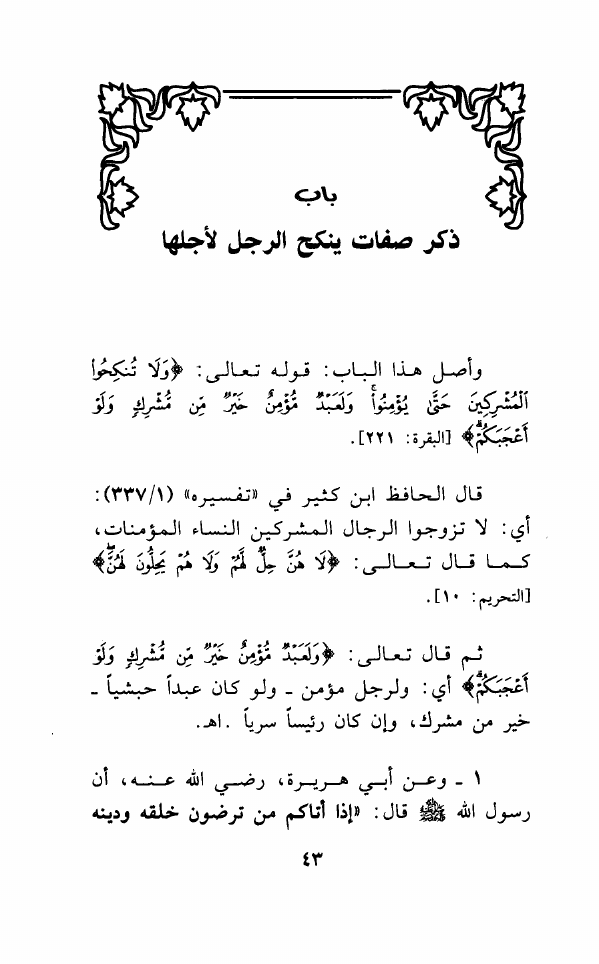 باب
ذكر صفات ينكح الرجل لأجلها
وأصل هذا الباب: قوله تعالى: ﴿وَلَا تُنكِحُوا
ٱلْمُشْرِكِينَ حَتَّىٰ يُؤْمِنُوا۟ۚ وَلَعَبْدٌ مُّؤْمِنٌ خَيْرٌ مِّن مُّشْرِكٍ وَلَوْ
أَعْجَبَكُمْۗ﴾ [البقرة: ٢٢١].
قال الحافظ ابن كثير في «تفسيره» (٣٣٧/١):
أي: لا تزوجوا الرجال المشركين النساء المؤمنات،
كما قال تعالى: ﴿لَا هُنَّ حِلٌّ لَّهُمْ وَلَا هُمْ يَحِلُّونَ لَهُنَّۖ﴾
[التحريم: ١٠].
ثم قال تعالى: ﴿وَلَعَبْدٌ مُّؤْمِنٌ خَيْرٌ مِّن مُّشْرِكٍ وَلَوْ
أَعْجَبَكُمْۗ﴾ أي: ولرجل مؤمن ـ ولو كان عبداً حبشياً ـ
خير من مشرك، وإن كان رئيساً سرياً .اهـ.
١ ـ وعن أبي هريرة، رضي الله عنه، أن
رسول الله ﷺ قال: «إذا أتاكم من ترضون خلقه ودينه
٤٣